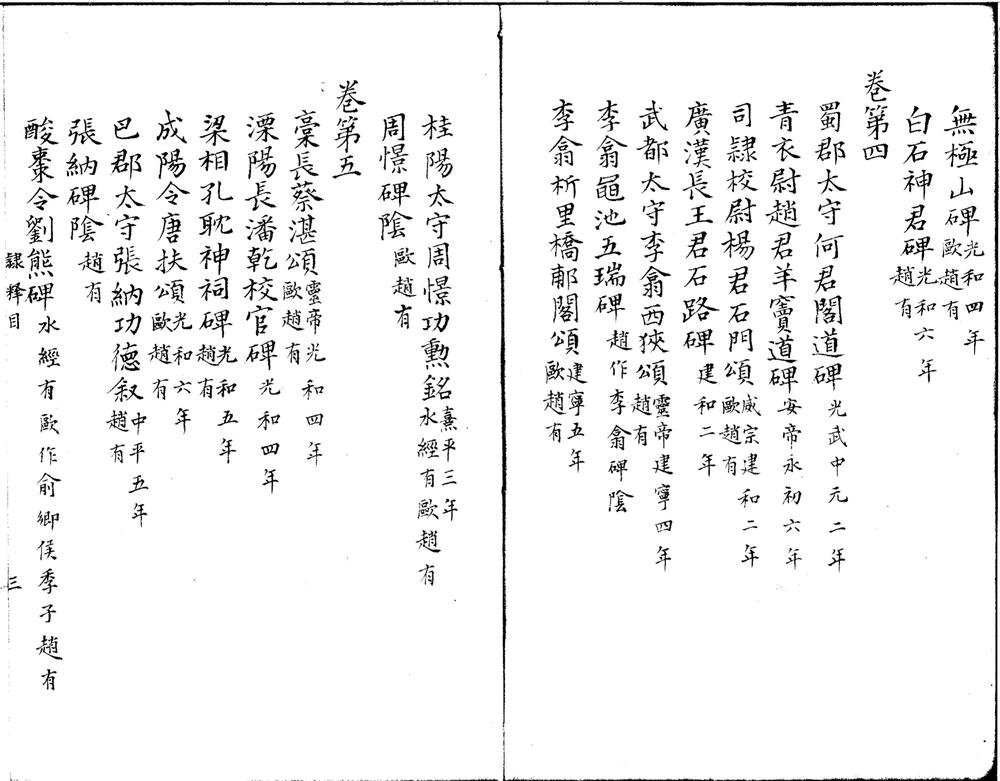 無極山碑光和四年歐趙有
白石神君碑光和六年趙有
卷第四
蜀郡太守何君閣道碑光武中元二年
青衣尉趙君羊竇道碑安帝永初六年
司隸校尉楊君石門頌威宗建和二年歐趙有
廣漢長王君石路碑建和二年
武都太守李翕西狹頌靈帝建寧四年趙有
李翕黽池五瑞碑趙作李翕碑陰
李翕析里橋郙閣頌建寧五年歐趙有
桂陽太守周憬功勲銘熹平三年水經有歐趙有
周憬碑陰歐趙有
卷第五
稾長蔡湛頌靈帝光和四年歐趙有
溧陽長潘乾校官碑光和四年
梁相孔耽神祠碑光和五年趙有
成陽令唐扶頌光和六年歐趙有
巴郡太守張納功德叙中平五年趙有
張納碑陰趙有
酸棗令劉熊碑水經有歐作俞鄉侯季子趙有
隸釋目
三